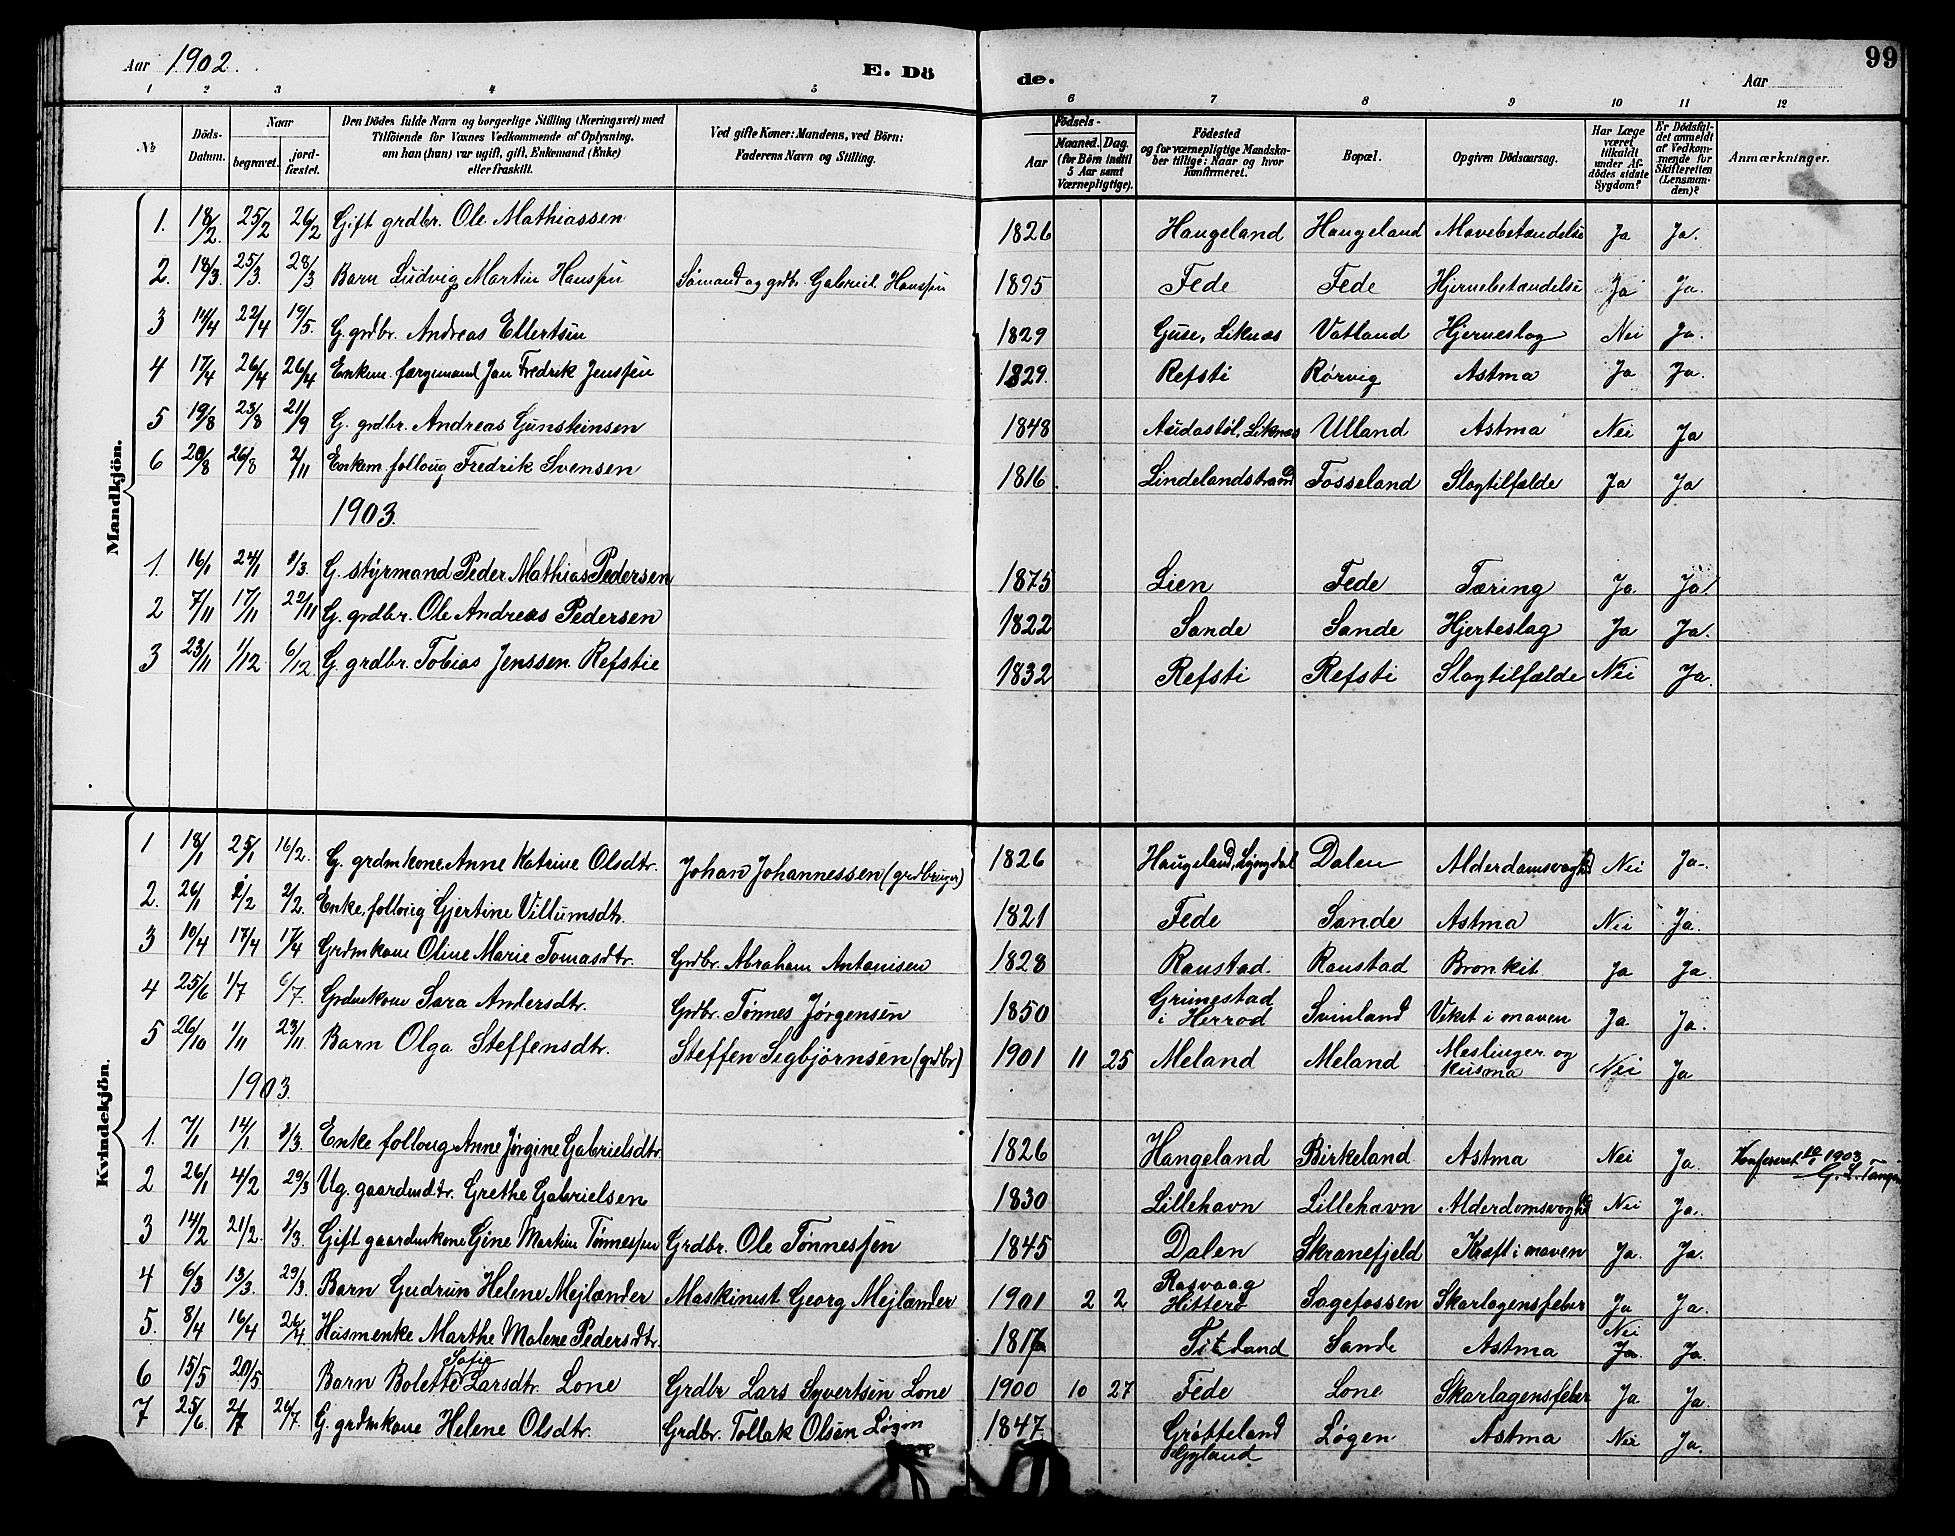 Aar 1902. E. Dö de. Aar 99
1 2 3 4 5 6 7 8 9 10 11 12
№ Döds-Datum. Naar begravet. jord-fæstet. Den Dödes fulde Navn og borgerlige Stilling (Næringsvei) med Tilföiende for Voxnes Vedkommende af Oplysning, om han (hun) var ugift, gift, Enkemand (Enke) eller fraskilt. Ved gifte Koner: Mandens, ved Börn: Faderens Navn og Stilling. Födsels- Aar Maaned. Dag. (for Börn indtil 5 Aar samt Værnepligtige). Födested og for værnepligtige Mandskaber tillige: Naar og hvor konfirmeret. Bopæl. Opgiven Dödsaarsag. Har Læge været tilkaldt under Afdödes sidste Sygdom? Er Dödsfaldet anmeldt af Vedkommende for Skifteretten (Lensmanden)? Anmærkninger.
Mandkjön.
1. 18/2 25/2 26/2 Gift grdbr. Ole Mathiassen 1826 Haugeland Haugeland Mavebetændelse Ja Ja.
2. 18/3. 25/3. 28/3 Barn Ludvig Martin Hanssen Sømand og grdbr. Gabriel Hanssen 1895 Fede Fede Hjernebetændelse Ja Ja.
3 14/4 22/4 19/5. G. grdbr. Andreas Ellertsen 1829 Guse, Liknæs Vatland Hjerneslag Nei Ja.
4 17/4 26/4 26/4 Enkem. færgemand Jan Fredrik Jenssen 1829. Refsti Rörvig Astma Ja Ja.
5 19/8 23/8 21/9 G. grdbr. Andreas Gunsteinsen 1848 Audastöl, Liknæs Ulland Astma Nei Ja
6 20/8 26/8 2/11 Enkem. folloug Fredrik Svensen 1816 Lindelandstrand Fosseland Slagtilfælde Ja Ja
1903.
1. 16/1 24/1 1/3. G. styrmand Peder Mathias Pedersen 1875 Lien Fede Tæring Ja Ja
2 7/11 17/11 22/11 G. grdbr. Ole Andreas Pedersen 1822 Sande Sande Hjerteslag Ja Ja.
3 23/11 1/12. 6/12. G. grdbr. Tobias Jenssen Refstie 1832 Refsti Refsti Slagtilfælde Nei Ja.
Kvindekjön.
1 18/1 25/1 16/2. G. grdmkone Anne Katrine Olsdtr. Johan Johannessen (grdbruger) 1826 Haugeland, Lyngdal Dalen Alderdomsvaghd Nei Ja.
2. 26/1 2/2 2/2. Enke, folloug Gjertine Villumsdtr. 1821 Fede Sande Astma Nei Ja.
3 10/4 17/4 17/4 Grdmkone Oline Marie Tomasdtr. Grdbr. Abraham Antonisen 1828 Raustad. Raustad Bronkit Ja Ja.
4 25/6 1/7 6/7. Grdmkone Sara Andersdtr. Grdbr. Tønnes Jørgensen 1850 Grimestad i Herrod Svinland Vekst i maven Ja Ja.
5 26/10 1/11 23/11. Barn Olga Steffensdtr. Steffen Sigbjørnsen (grdbr) 1901 11 25 Meland Meland Meslinger og kusma Nei Ja
1903.
1. 7/1 14/1 1/3. Enke folloug Anne Jørgine Gabrielsdtr. 1826 Haugeland Birkeland Astma Nei Ja Konfereret 1903
2 26/1 4/2 29/3 Ug. gaardmdtr. Grethe Gabrielsen 1830 Lillehavn Lillehavn Alderdomsvaghd Nei Ja.
3 14/2 21/2. 1/3. Gift gaardmkone Gine Martine Tønnessen Grdbr. Ole Tønnessen 1845 Dalen Skranefjeld Kræft i maven Ja. Ja.
4 6/3 13/3. 29/3. Barn Gudrun Helene Mejlænder Maskinist Georg Mejlænder 1901 2 2 Rasvaag Hitterø Sagefossen Skarlagensfeber Ja Ja.
5. 8/4 16/4 26/4 Husmenke Marthe Malene Pedersdtr. 1817 Titland Sande Astma Nei Ja Ja.
6 15/5 20/5 Barn Bolette Sofie Larsdtr. Lone Grdbr Lars Syvertsen Lone 1900 10 27 Fede Lone Skarlagensfeber Ja Ja.
7 25/6 2/7 26/7. G. grdmkone Helene Olsdtr. Grdbr. Tollak Olsen Løgen 1847 Grøtteland Gyland Løgen Astma Nei Ja.